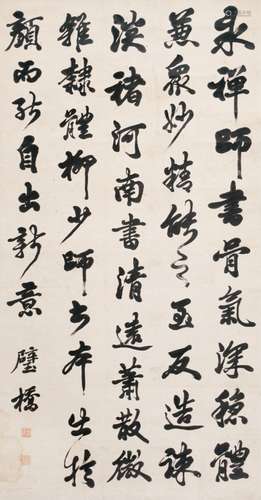 永禅师书骨氣深穩體
兼衆妙精能之至反造疎
淡褚河南書清遠蕭散微
雜隸體柳少師书本出於
顏而能自出新意 璧橋